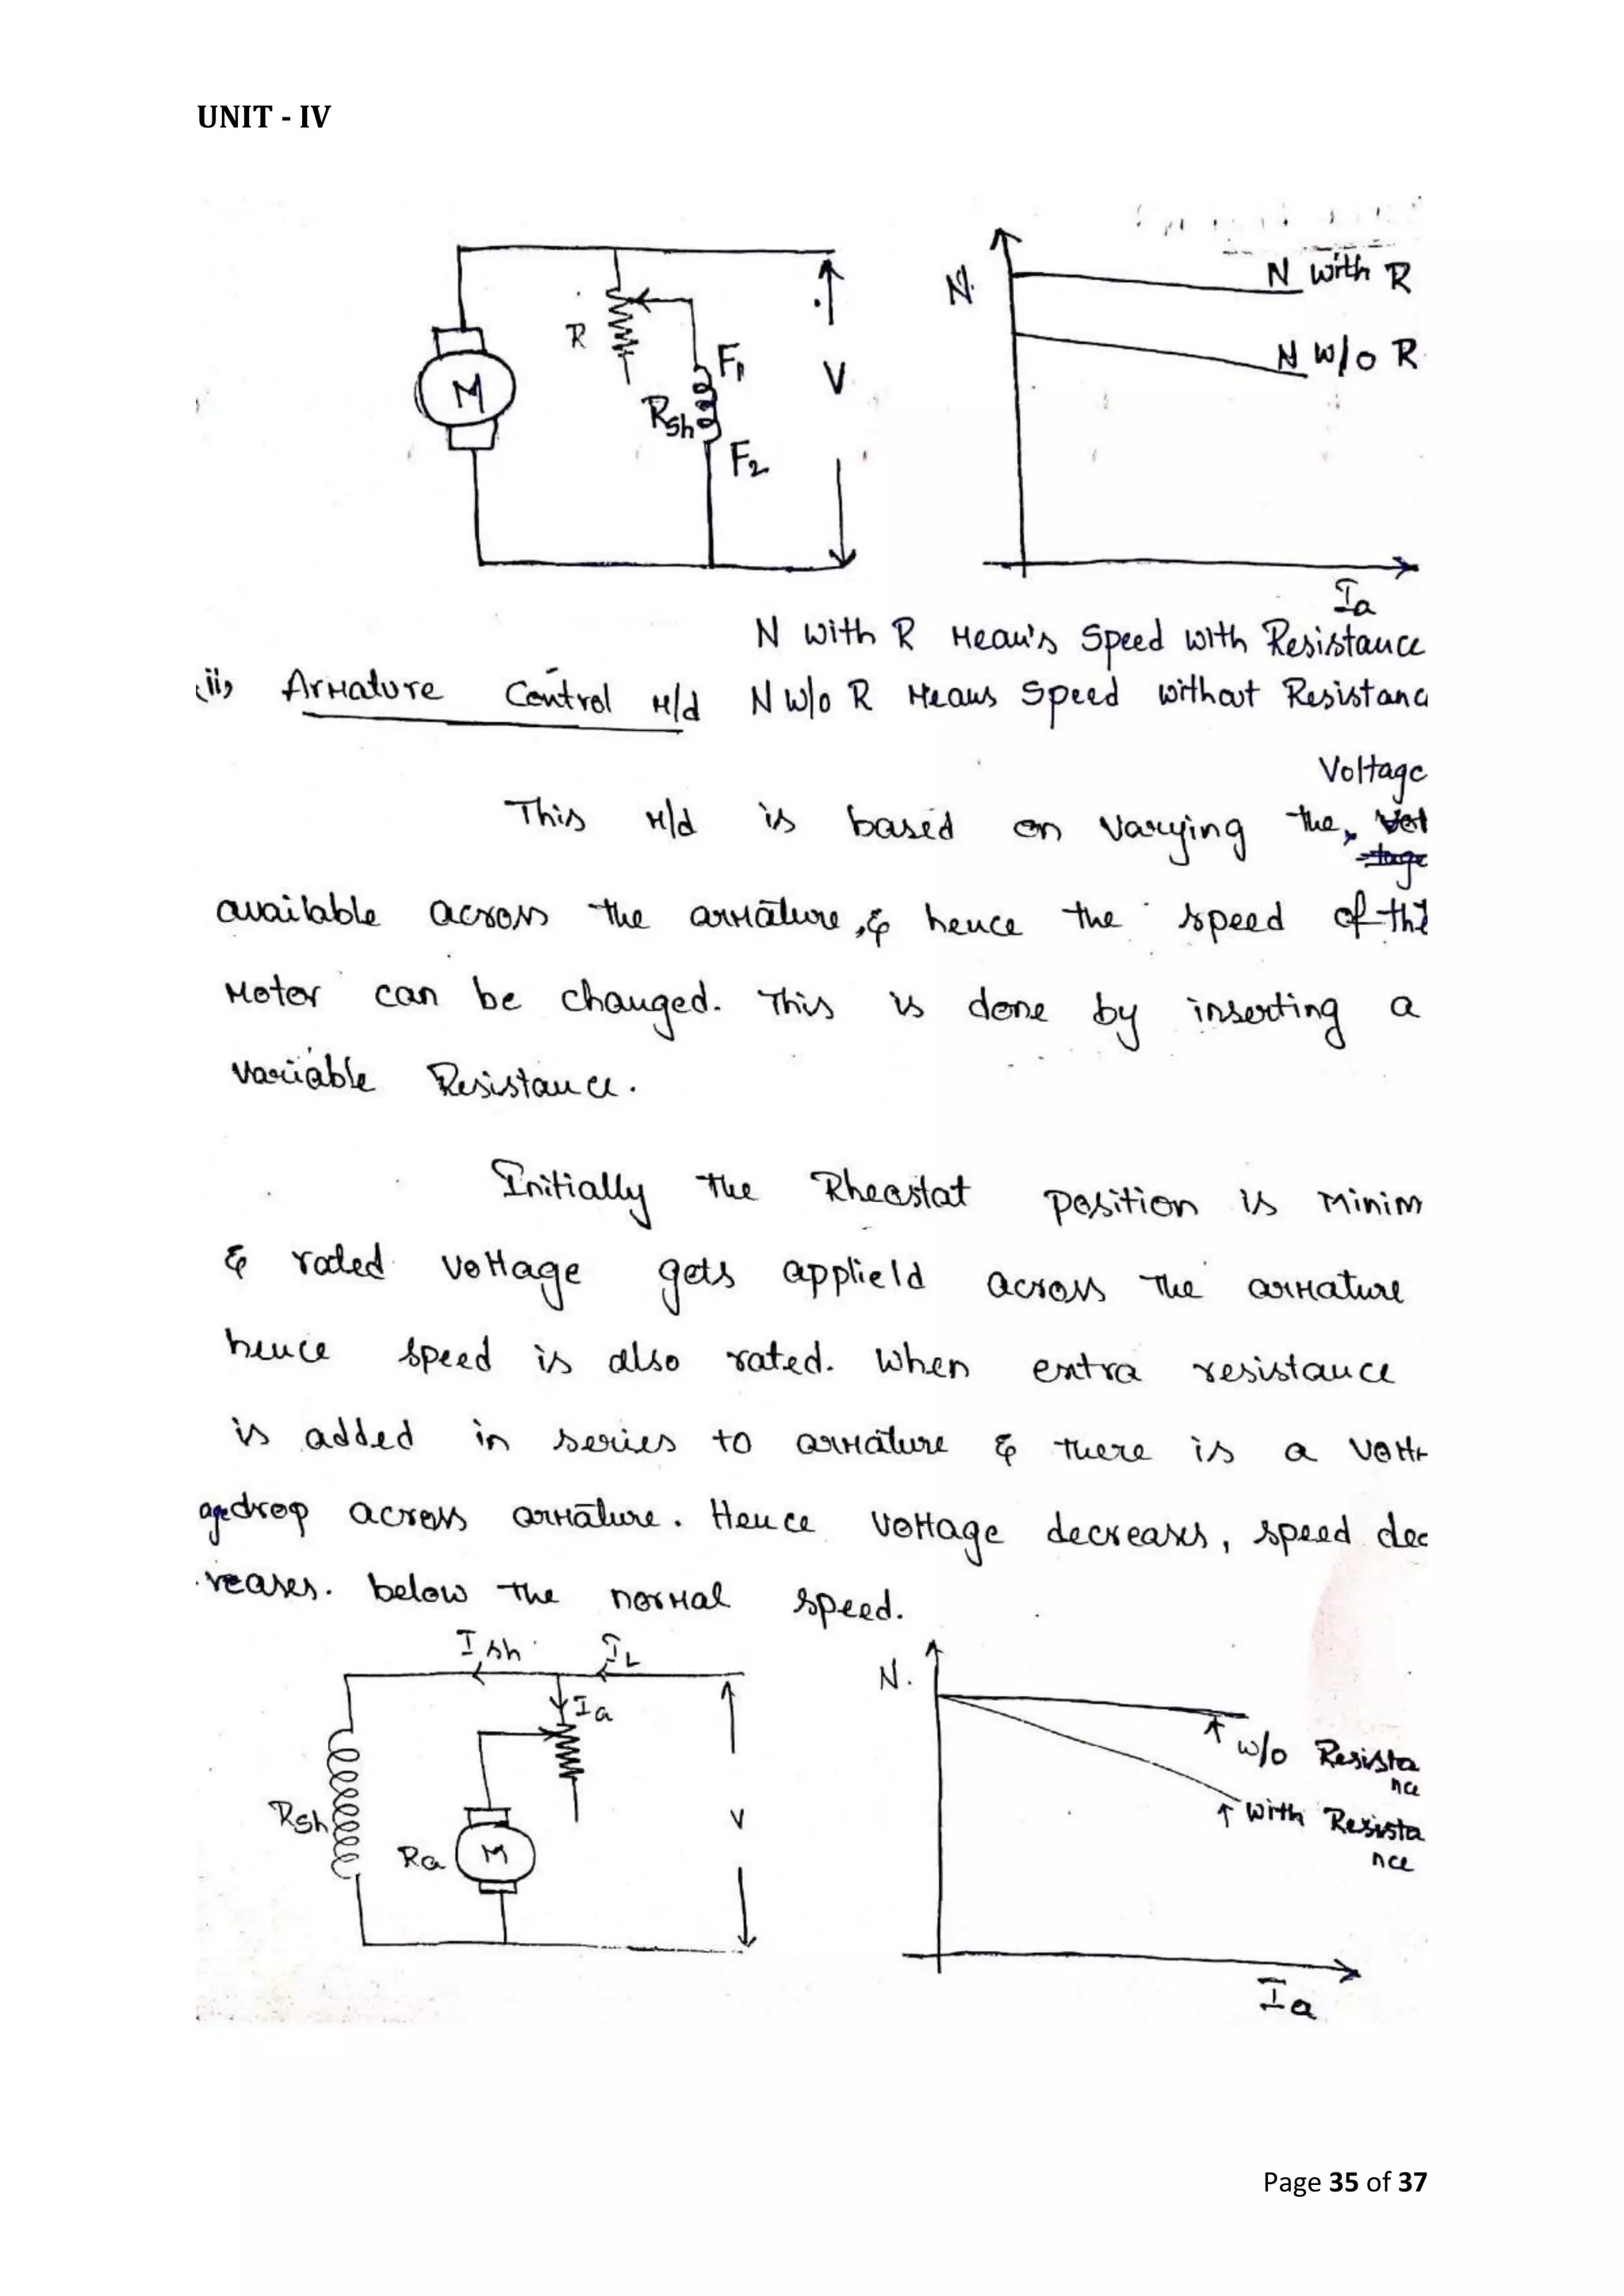 UNIT - IV
N
N with R
R
F1
N w/o R
M
V
Rsh
F2
Ia
N with R Mean's Speed with Resistance
(ii) Armature Control M/d N w/o R Means Speed without Resistanc
Voltage
This M/d is based on varying the
available across the armature, & hence the speed of the
Motor can be changed. This is done by inserting a
variable Resistance.
Initially the Rheostat position is Minim
& rated voltage gets applield across the armature
hence speed is also rated. When extra resistance
is added in series to armature & there is a volt
age drop across armature. Hence voltage decreases, speed dec
reases. below the normal speed.
Ish IL
N.
Ia
w/o Resista
nce
Rsh
V
with Resista
nce
Ra M
Ia
Page 35 of 37